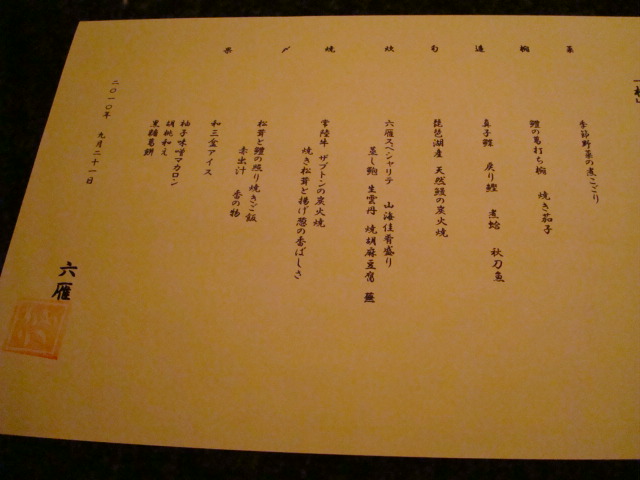 菜
季節野菜の煮こごり
椀
鱧の葛打ち椀 焼き茄子
造
真子鰈 戻り鰹 煮蛤 秋刀魚
旬
琵琶湖産 天然鰻の炭火焼
炊
六雁スペシャリテ 山海佳肴盛り
蒸し鮑 生雲丹 焼胡麻豆腐
焼
常陸牛 ザブトンの炭火焼
焼き松茸と揚げ葱の香ばしさ
〆
松茸と鱧の照り焼きご飯
赤出汁 香の物
果
和三盆アイス
柚子味噌マカロン
胡桃和え
黒糖葛餅
二〇一〇年 九月二十一日
六雁